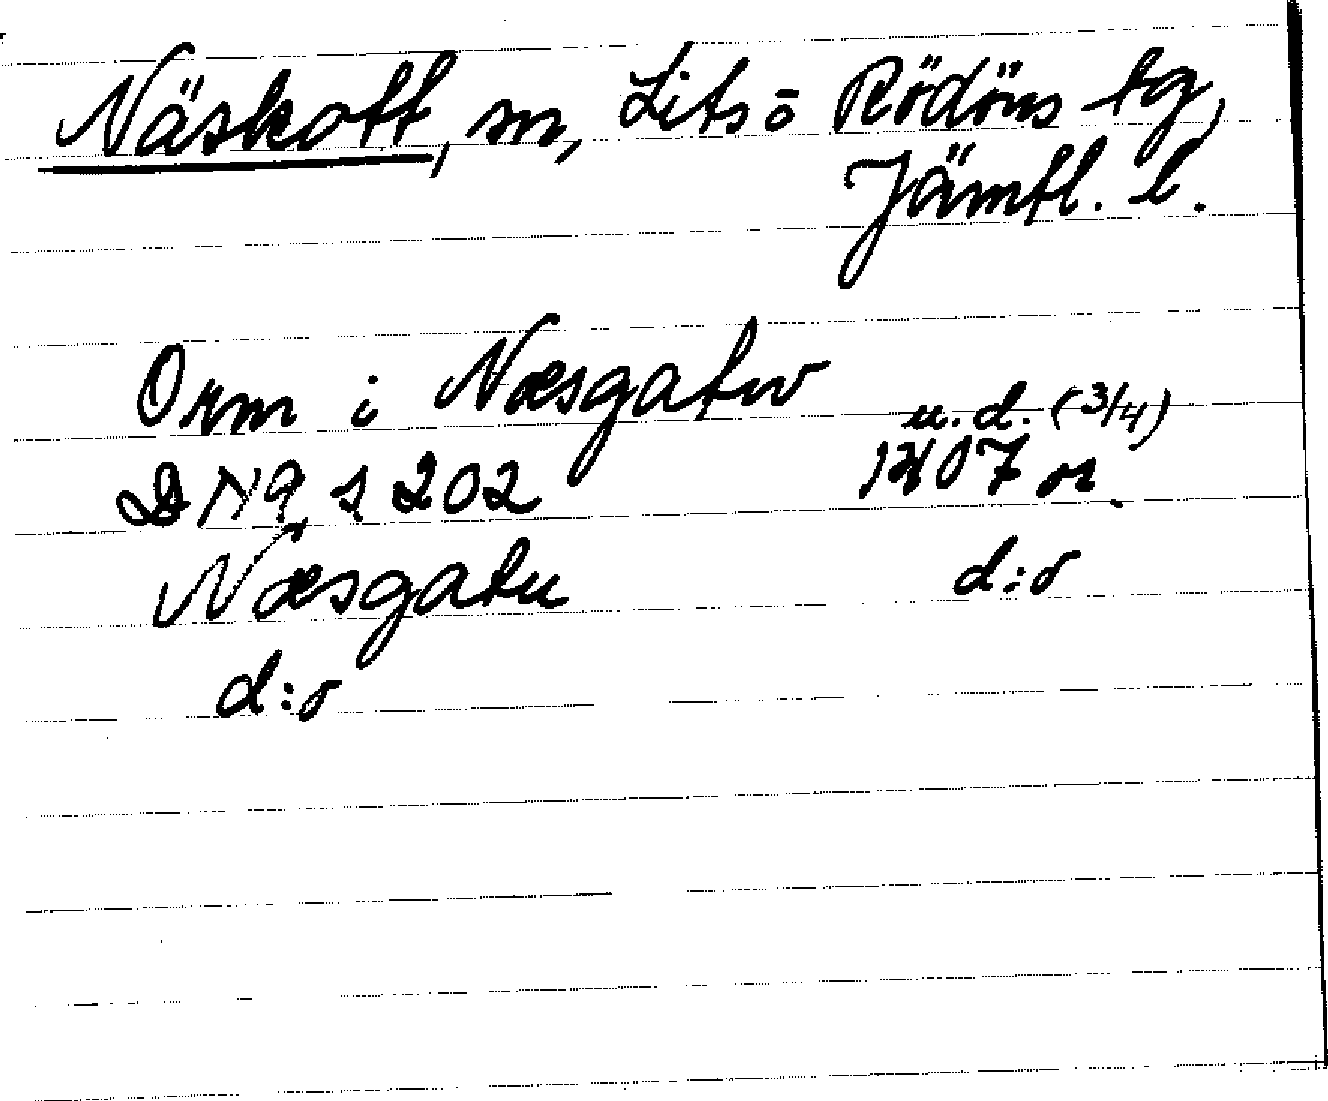 Näskott, sn, Lits o Rödöns tg,
Jämtl. l.
Orm i Næsgatw
u.d. (3/4)
DN 9, s 202
1407 or.
Næsgatu
d:o
d:o